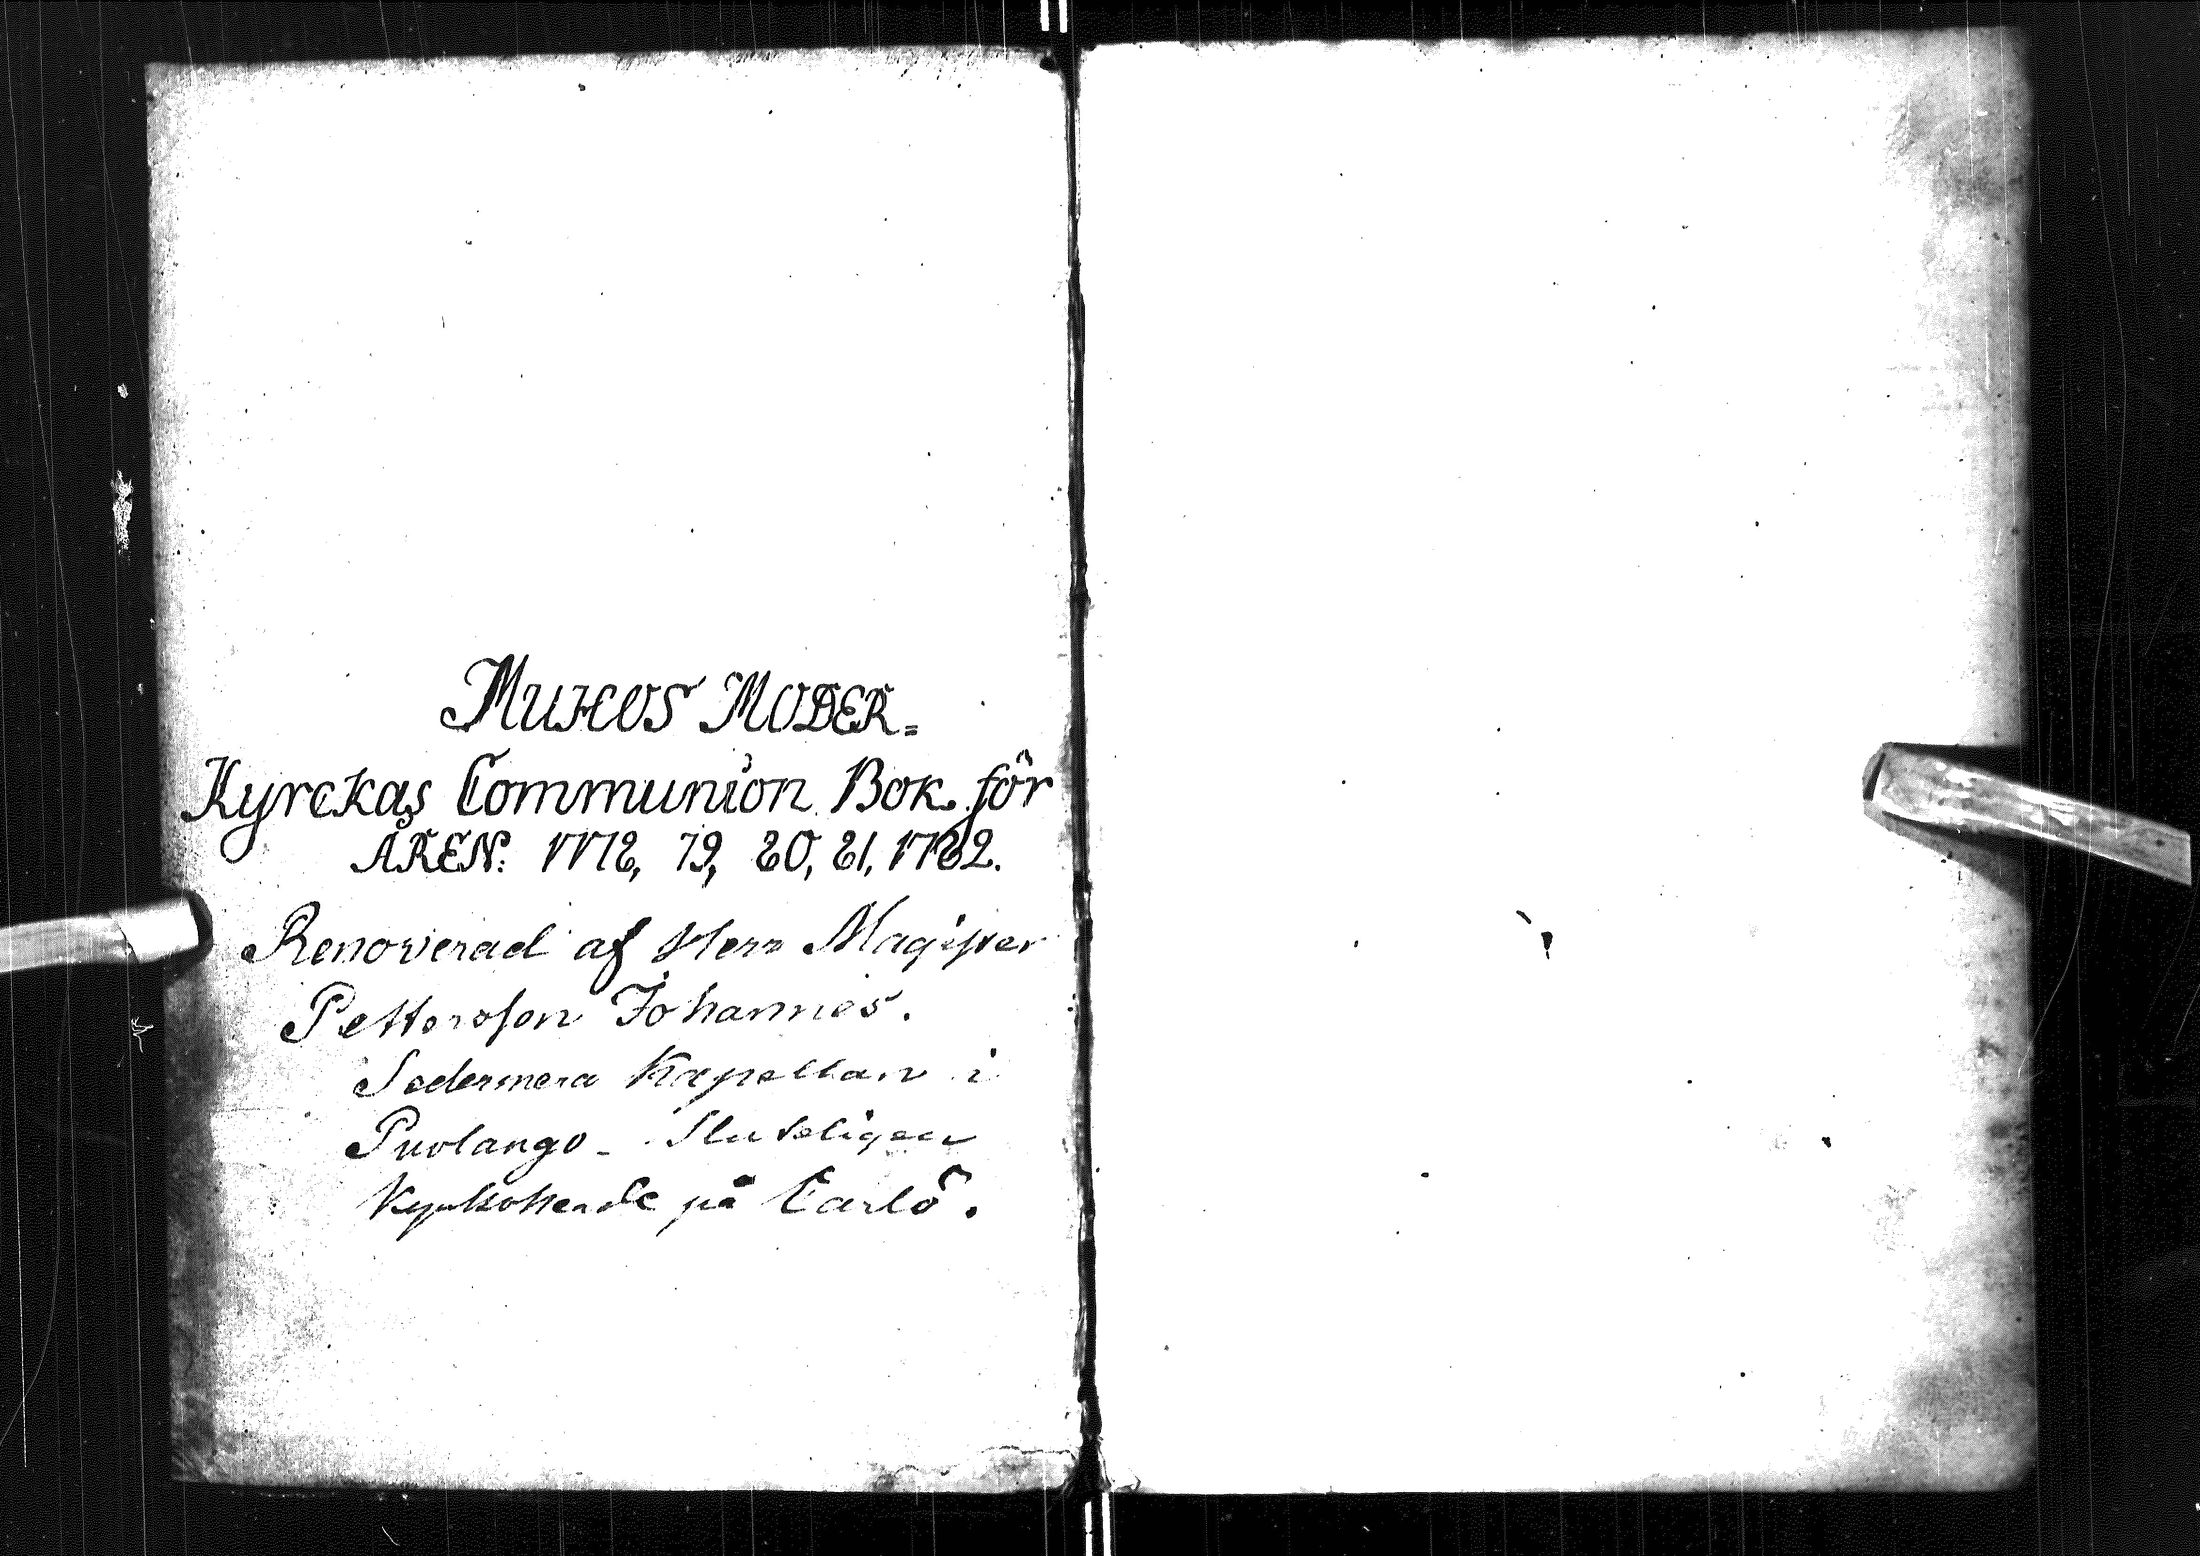 MUHOS MODER=
Kyrckas Communion Bok för
ÅREN: 1778, 79, 80, 81, 1782.
Renoverad af Herr Magister
Petterson Johannes.
Sedermera Kapellan i
Puolango - Sluteligen
Kyrkoherde på Carlö.